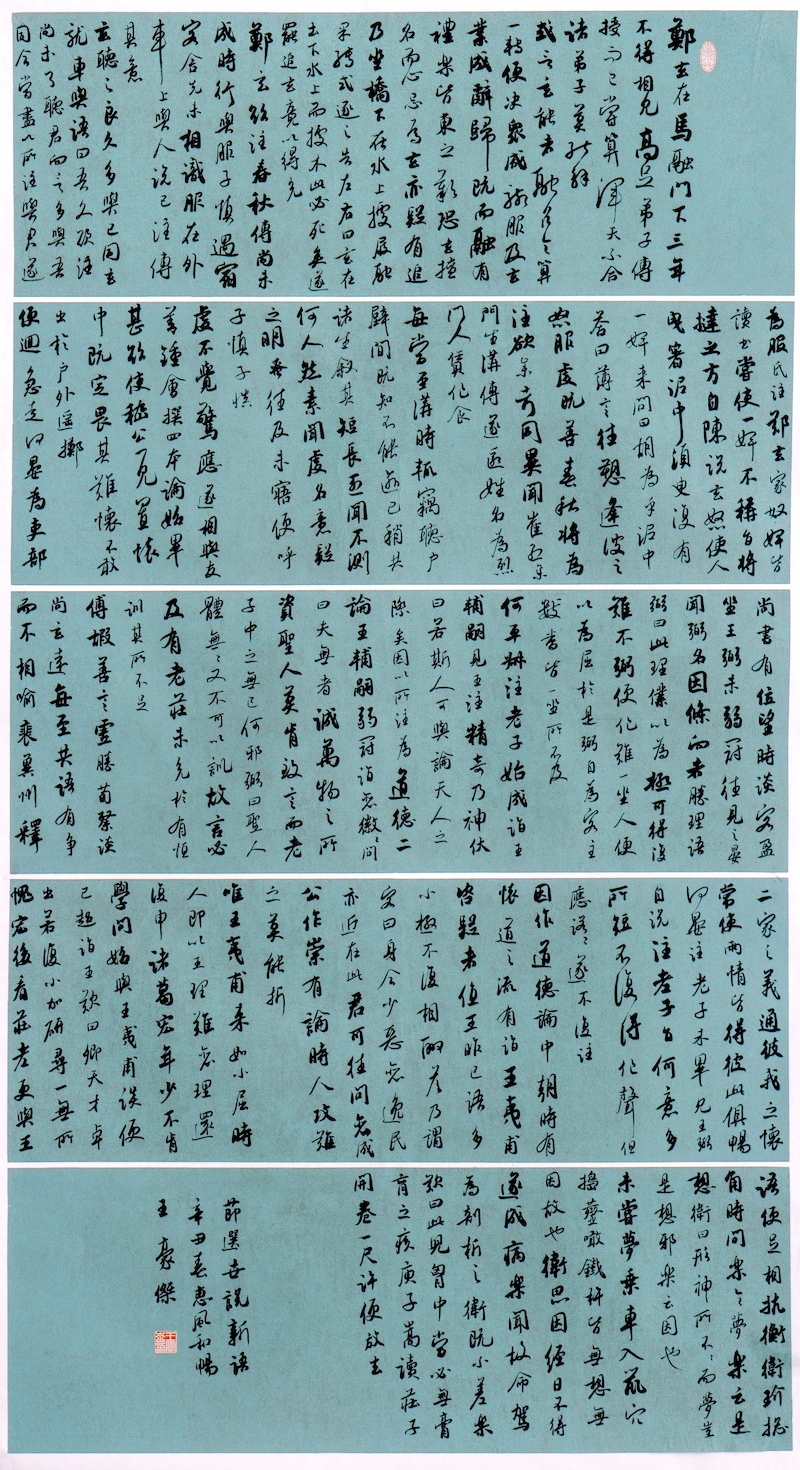 鄭玄在馬融門下三年
不得相見高足弟子傳
授而已嘗算渾天不合
諸弟子莫能解
或言玄能者融召令算
一轉便決眾咸駭服及玄
業成辭歸既而融有
禮樂皆東之歎恐玄擅
名而心忌焉玄亦疑有追
乃坐橋下在水上據屐融
果轉式逐之告左右曰玄在
土下水上而據木此必死矣遂
罷追玄竟以得免
鄭玄欲注春秋傳尚未
成時行與服子慎遇宿
客舍先未相識服在外
車上與人說已注傳
其意
玄聽之良久多與已同玄
就車與語曰吾久欲注
尚未了聽君向言多與吾
同今當盡以所注與君遂
為服氏注鄭玄家奴婢皆
讀書嘗使一婢不稱旨將
撻之方自陳說玄怒使人
曳著泥中須臾復有
一婢來問曰胡為乎泥中
答曰薄言往愬逢彼之
怒服虔既善春秋將為
注欲參考同異聞崔烈集
門生講傳遂匿姓名為烈
門人賃作食
每當至講時輒竊聽戶
壁間既知不能踰已稍共
諸生敘其短長烈聞不測
何人然素聞虔名意疑
之明蚤往及未寤便呼
子慎子慎
虔不覺驚應遂相與友
善鍾會撰四本論始畢
甚欲使嵇公一見置懷
中既定畏其難懷不敢
出於戶外遙擲
便迴急走何晏為吏部
尚書有位望時談客盈
坐王弼未弱冠往見之晏
聞弼名因條向者勝理語
弼曰此理僕以為極可得復
難不弼便作難一坐人便
以為屈於是弼自為客主
數番皆一坐所不及
何平叔注老子始成詣王
輔嗣見王注精奇乃神伏
曰若斯人可與論天人之
際矣因以所注為道德二
論王輔嗣弱冠詣裴徽徽問
曰夫無者誠萬物之所
資聖人莫肯致言而老
子申之無已何邪弼曰聖人
體無無又不可以訓故言必
及有老莊未免於有恒
訓其所不足
傅嘏善言虛勝荀粲談
尚玄遠每至共語有爭
而不相喻裴冀州釋
二家之義通彼我之懷
常使兩情皆得彼此俱暢
何晏注老子未畢見王弼
自說注老子旨何意多
所短不復得作聲但
應諾諾遂不復注
因作道德論中朝時有
懷道之流有詣王夷甫
咨疑者值王昨已語多
小極不復相酬答乃謂
客曰身今少惡裴逸民
亦近在此君可往問裴成
公作崇有論時人攻難
之莫能折
唯王夷甫來如小屈時
人即以王理難裴理還
復申諸葛宏年少不肯
學問始與王夷甫談便
已超詣王歎曰卿天才卓
出若復小加研尋一無所
愧宏後看莊老更與王
語便足相抗衡衛玠總
角時問樂令夢樂云是
想衛曰形神所不接而夢豈
是想邪樂云因也
未嘗夢乘車入鼠穴
擣虀噉鐵杵皆無想無
因故也衛思因經日不得
遂成病樂聞故命駕
為剖析之衛既小差樂
歎曰此兒胸中當必無膏
肓之疾庾子嵩讀莊子
開卷一尺許便放去
節選世說新語
辛丑春惠風和暢
王豪傑